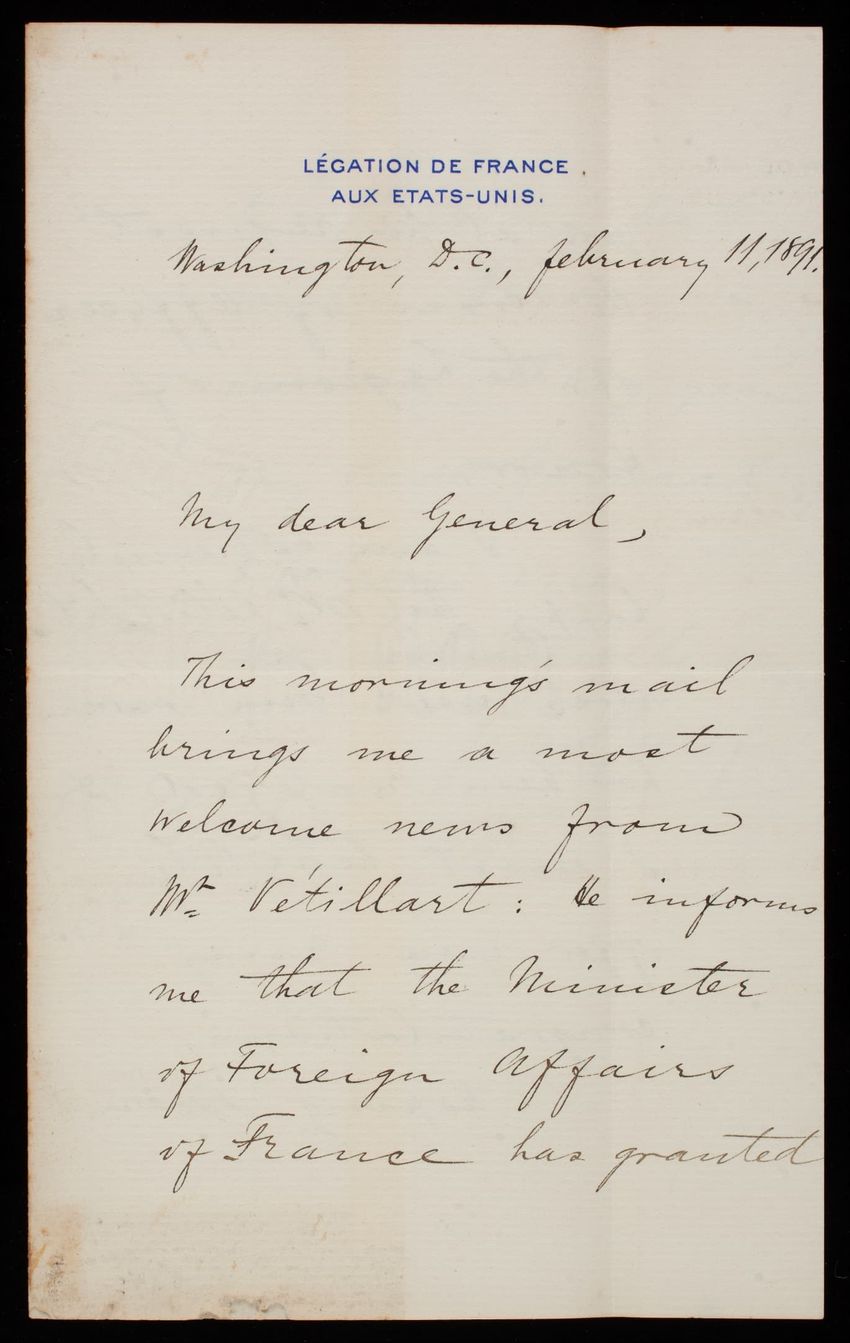 LÉGATION DE FRANCE
AUX ETATS-UNIS.
Washington, D.C., february 11, 1891.
My dear General,
This morning's mail
brings me a most
welcome news from
Mr Vétillart : He informs
me that the Minister
of Foreign Affairs
of France has granted